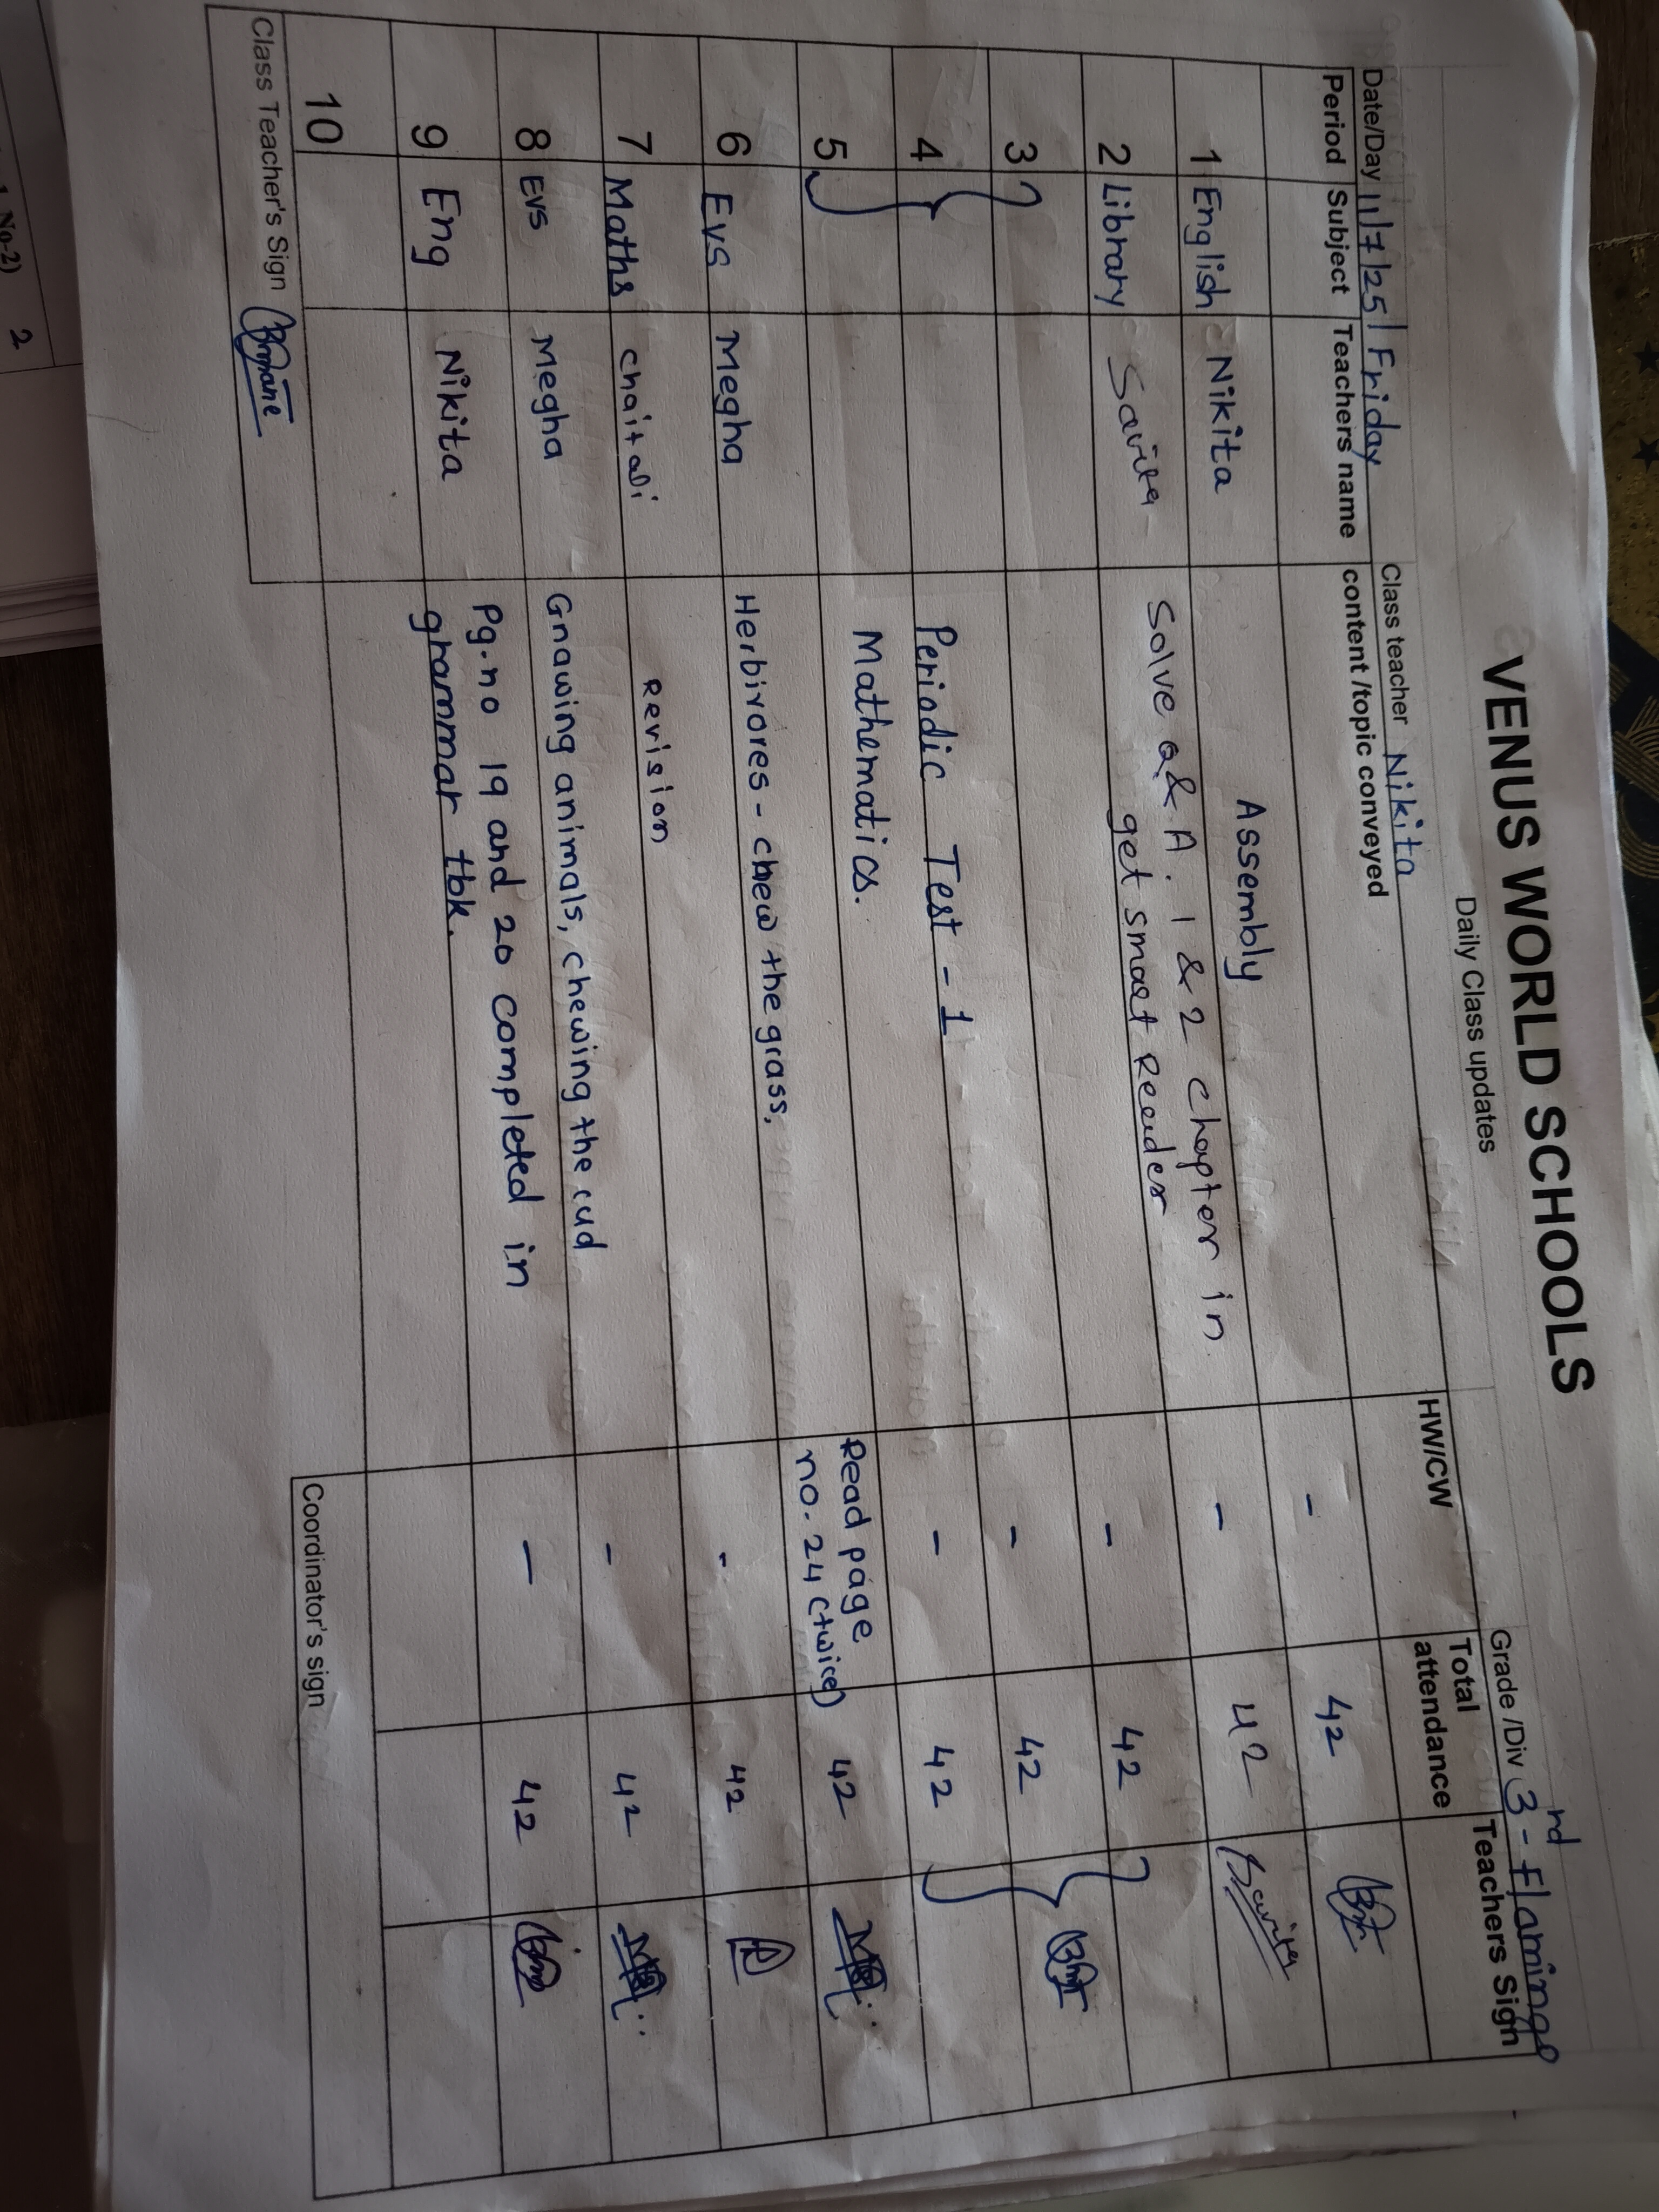 VENUS WORLD SCHOOLS
Daily Class updates
Date/Day 11/7/25/ Friday Class teacher Nikita Grade /Div 3rd - Flamingo
Period Subject Teachers name content /topic conveyed HW/CW Total attendance Teachers Sign
1 English Nikita Assembly - 42
2 Library Savita Solve Q & A. 1 & 2 Chapter in - 42 Savita
get smart Reader
3 - 42
4 Periodic Test - 1 - 42
5 Mathematics. - 42
6 Evs Megha Herbivores - chew the grass, Read page 42
no. 24 (twice)
7 Maths chaitali Revision - 42
8 Evs Megha Gnawing animals, chewing the cud - 42
9 Eng Nikita Pg. no 19 and 20 completed in - 42
grammar tbk.
10
Class Teacher's Sign Coordinator's sign
No-2) 2